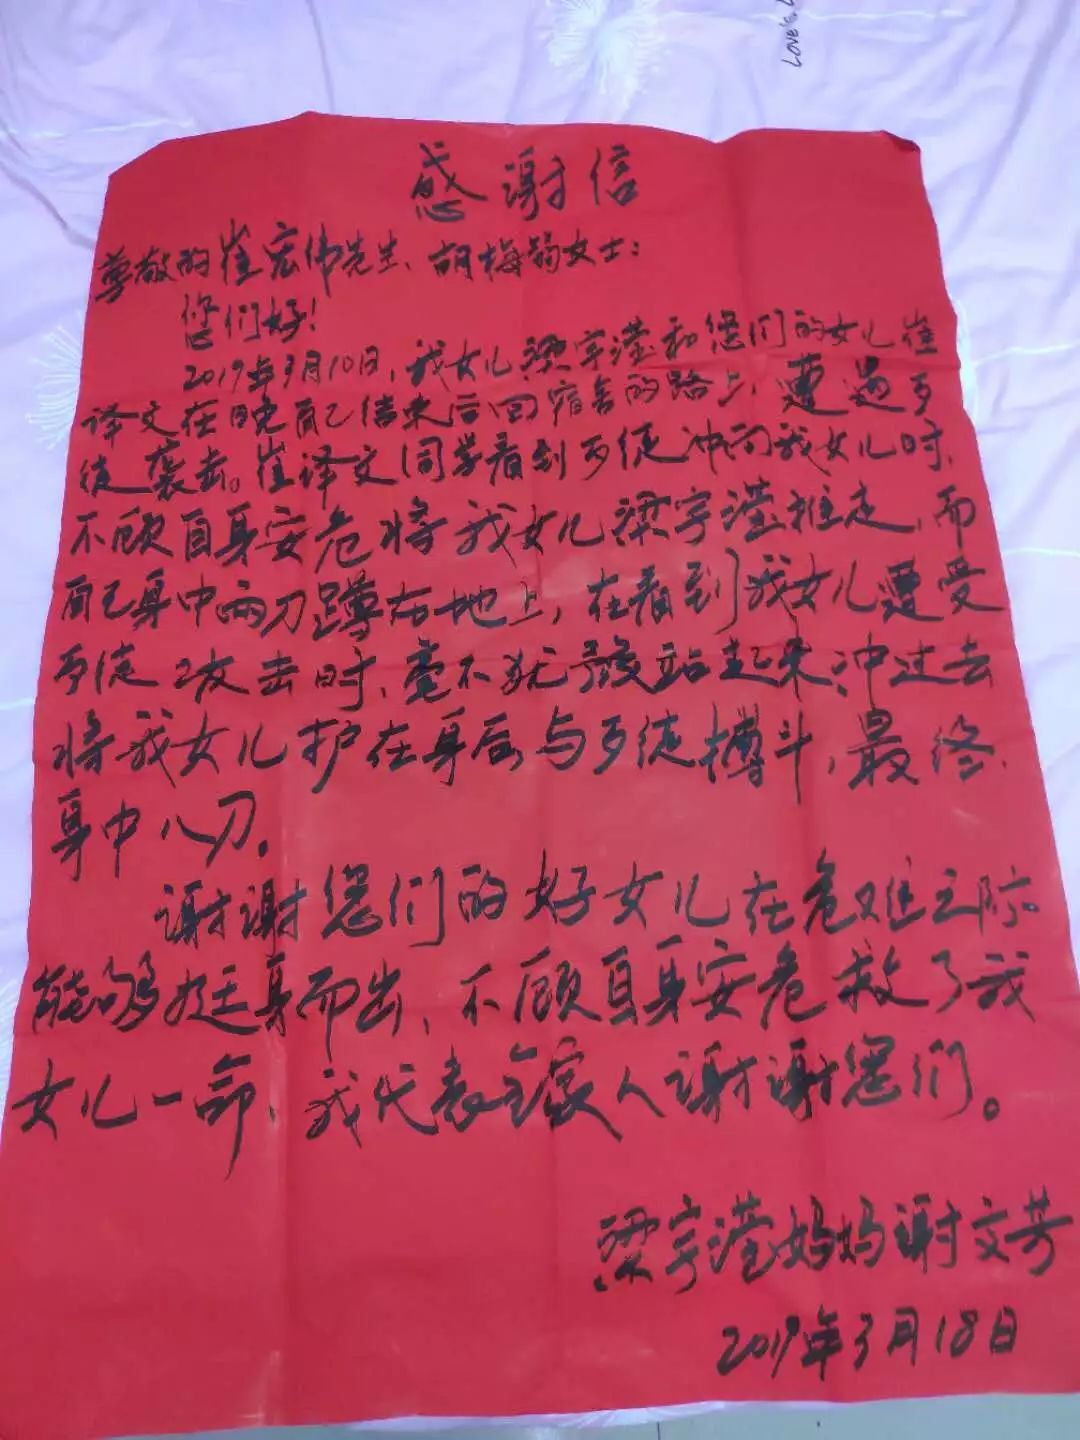 Love's L
感谢信
尊敬的崔宏伟先生、胡梅筠女士：
您们好！
2019年3月10日，我女儿梁宇滢和您们的女儿崔
译文在晚自己结束后回宿舍的路上，遭遇歹
徒袭击。崔译文同学看到歹徒冲向我女儿时，
不顾自身安危将我女儿梁宇滢推走，而
自己身中两刀蹲在地上，在看到我女儿遭受
歹徒攻击时，毫不犹豫站起来冲过去
将我女儿护在身后与歹徒搏斗，最终
身中八刀。
谢谢您们的好女儿在危难之际
能够挺身而出，不顾自身安危救了我
女儿一命，我代表全家人谢谢您们。
梁宇滢妈妈谢文芳
2019年3月18日